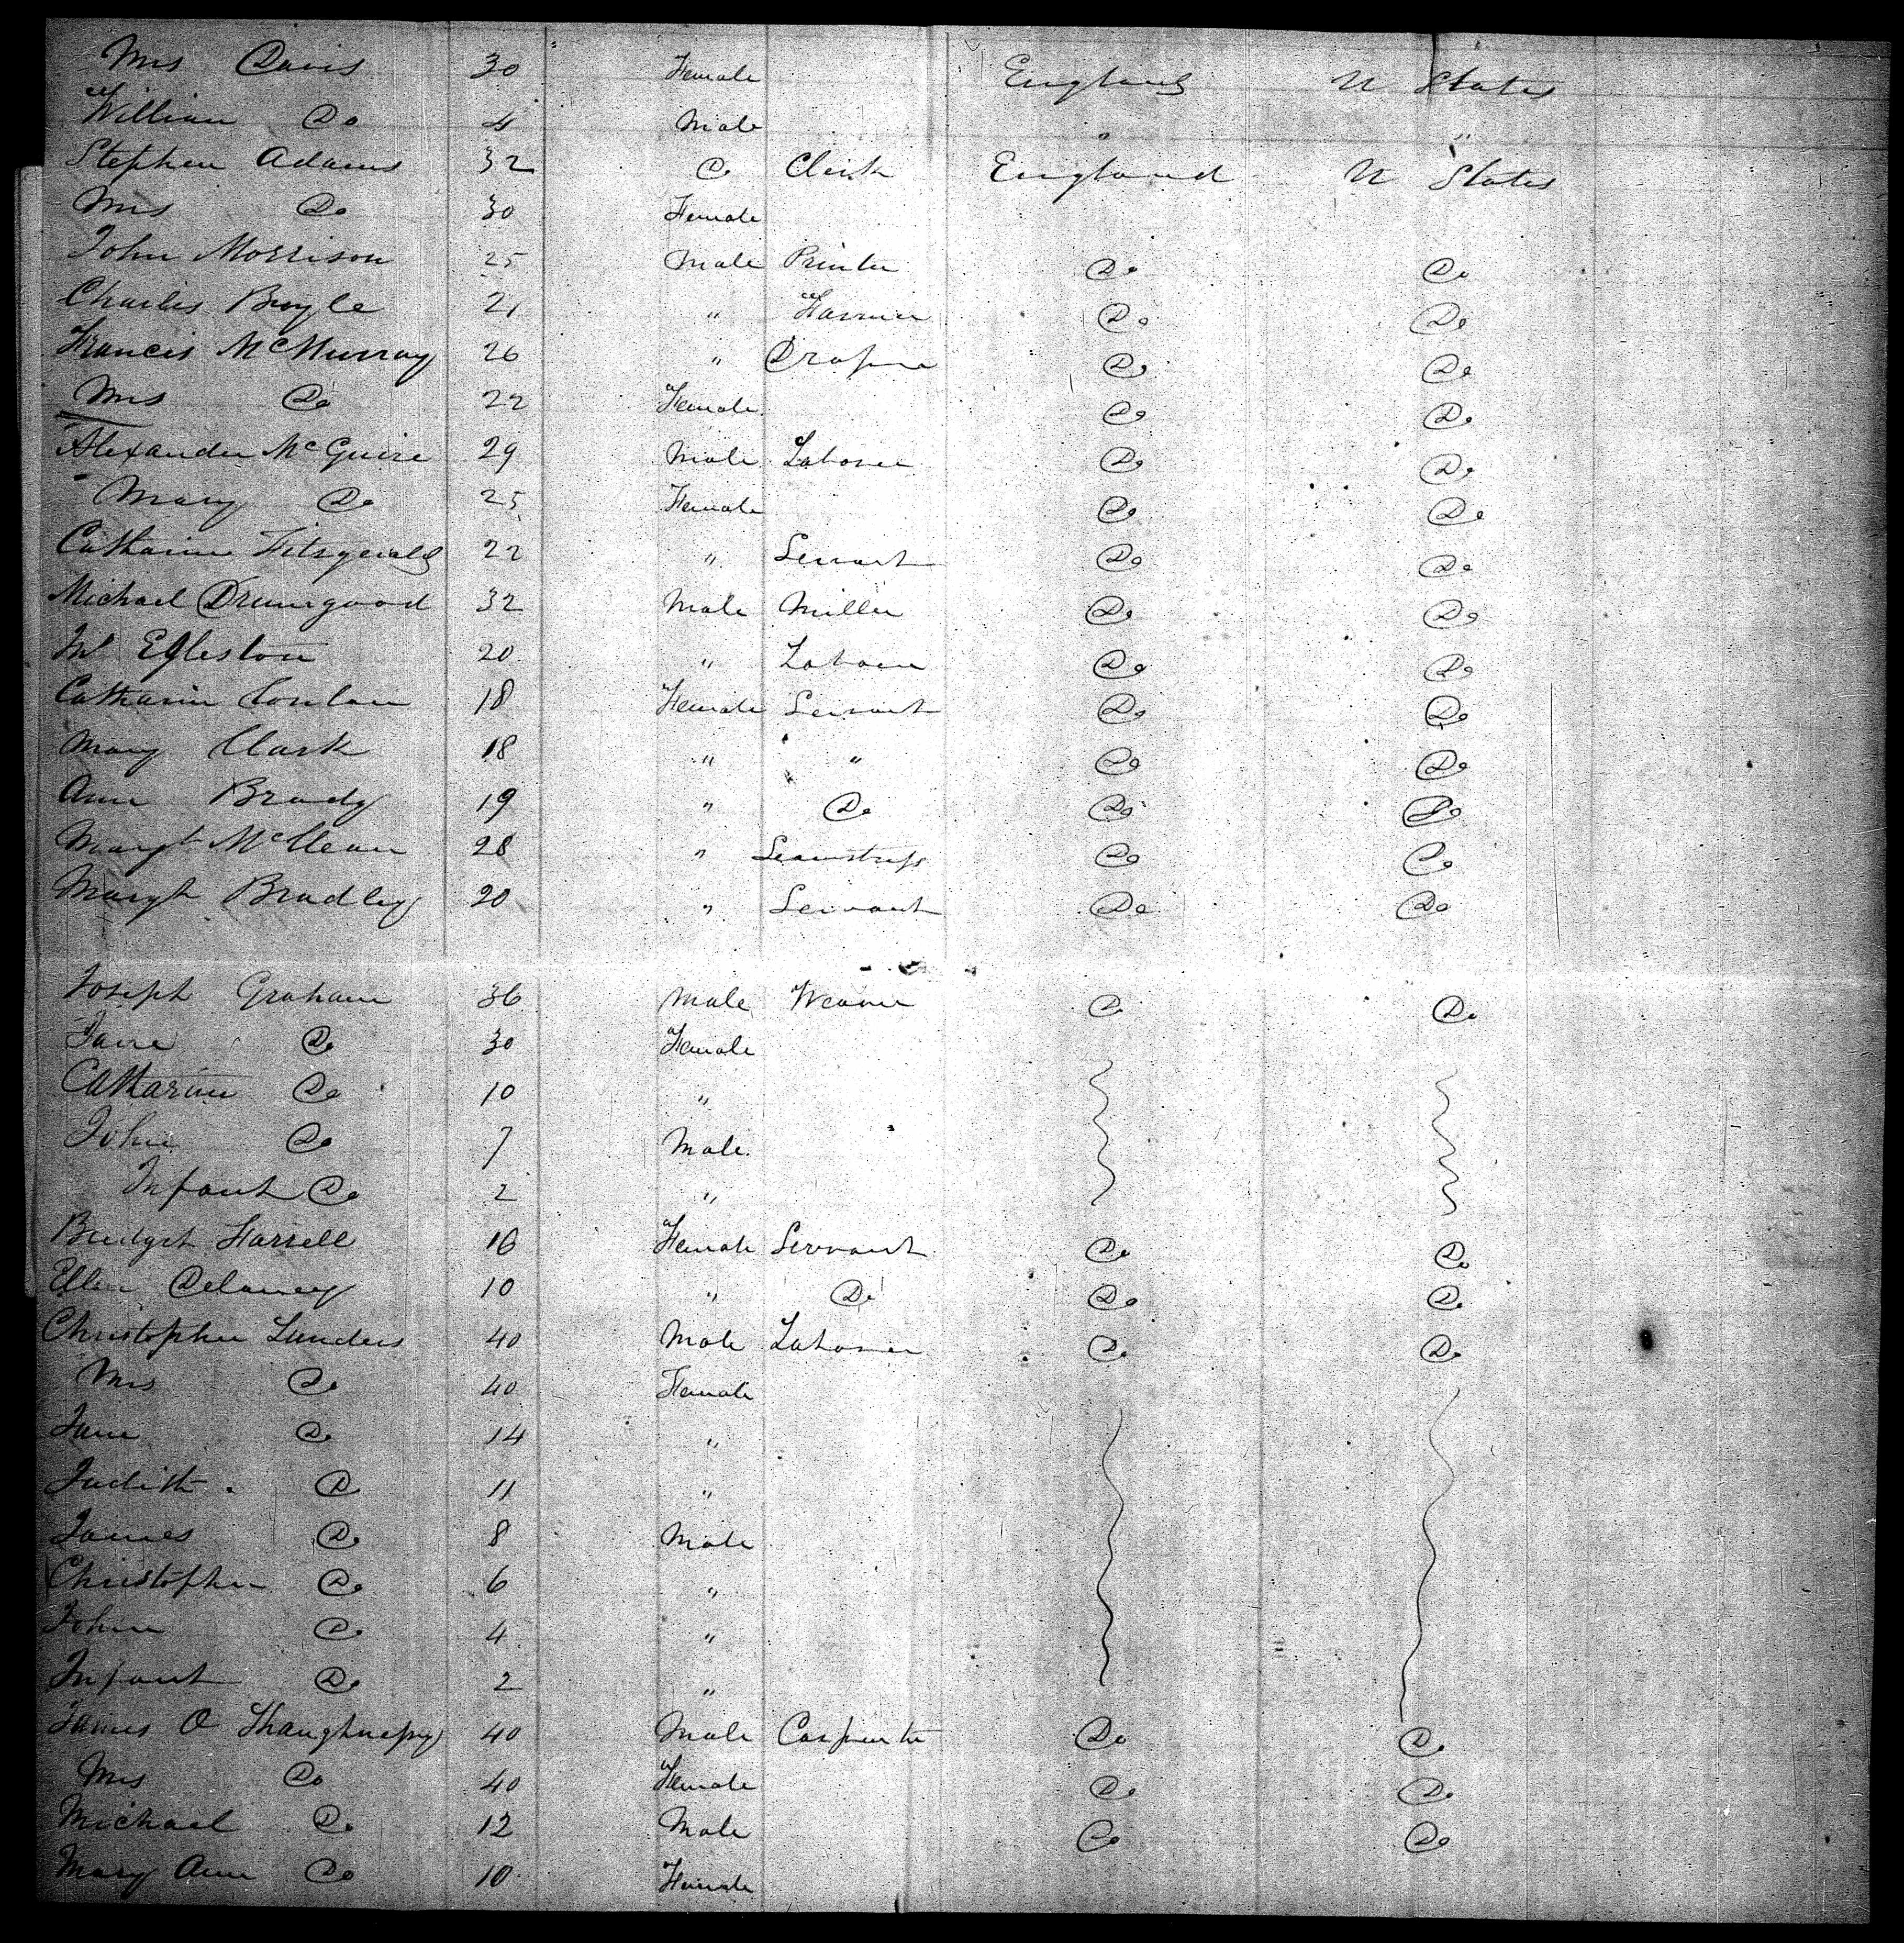 Mrs Davis 30 Female England U States
William Do 4 Male " "
Stephen Adams 32 Do Clerk England U States
Mrs Do 30 Female
John Morrison 25 Male Printer Do Do
Charles Boyle 21 " Farmer Do Do
Francis McMurray 26 " Draper Do Do
Mrs Do 22 Female Do Do
Alexander McGuire 29 Male Laborer Do Do
Mary Do 25 Female Do Do
Catharine Fitzgerald 22 " Servant Do Do
Michael Drumgood 32 Male Miller Do Do
Egleston 20 " Laborer Do Do
Catharin Conlan 18 Female Servant Do Do
Mary Clark 18 " " Do Do
Ann Brady 19 " Do Do Do
Margt McClean 28 " Seamstress Do Do
Margt Bradley 20 " Servant Do Do
Joseph Graham 36 Male Weaver Do Do
Jane Do 30 Female
Catharine Do 10 "
John Do 7 Male
Infant Do 2 "
Bridget Farrell 16 Female Servant Do Do
Ellen Delaney 10 " Do Do Do
Christopher Landers 40 Male Laborer Do Do
Mrs Do 40 Female
Jane Do 14 "
Judith Do 11 "
James Do 8 Male
Christopher Do 6 "
John Do 4 "
Infant Do 2 "
James O Shaughnessy 40 Male Carpenter Do Do
Mrs Do 40 Female Do Do
Michael Do 12 Male Do Do
Mary Ann Do 10 Female